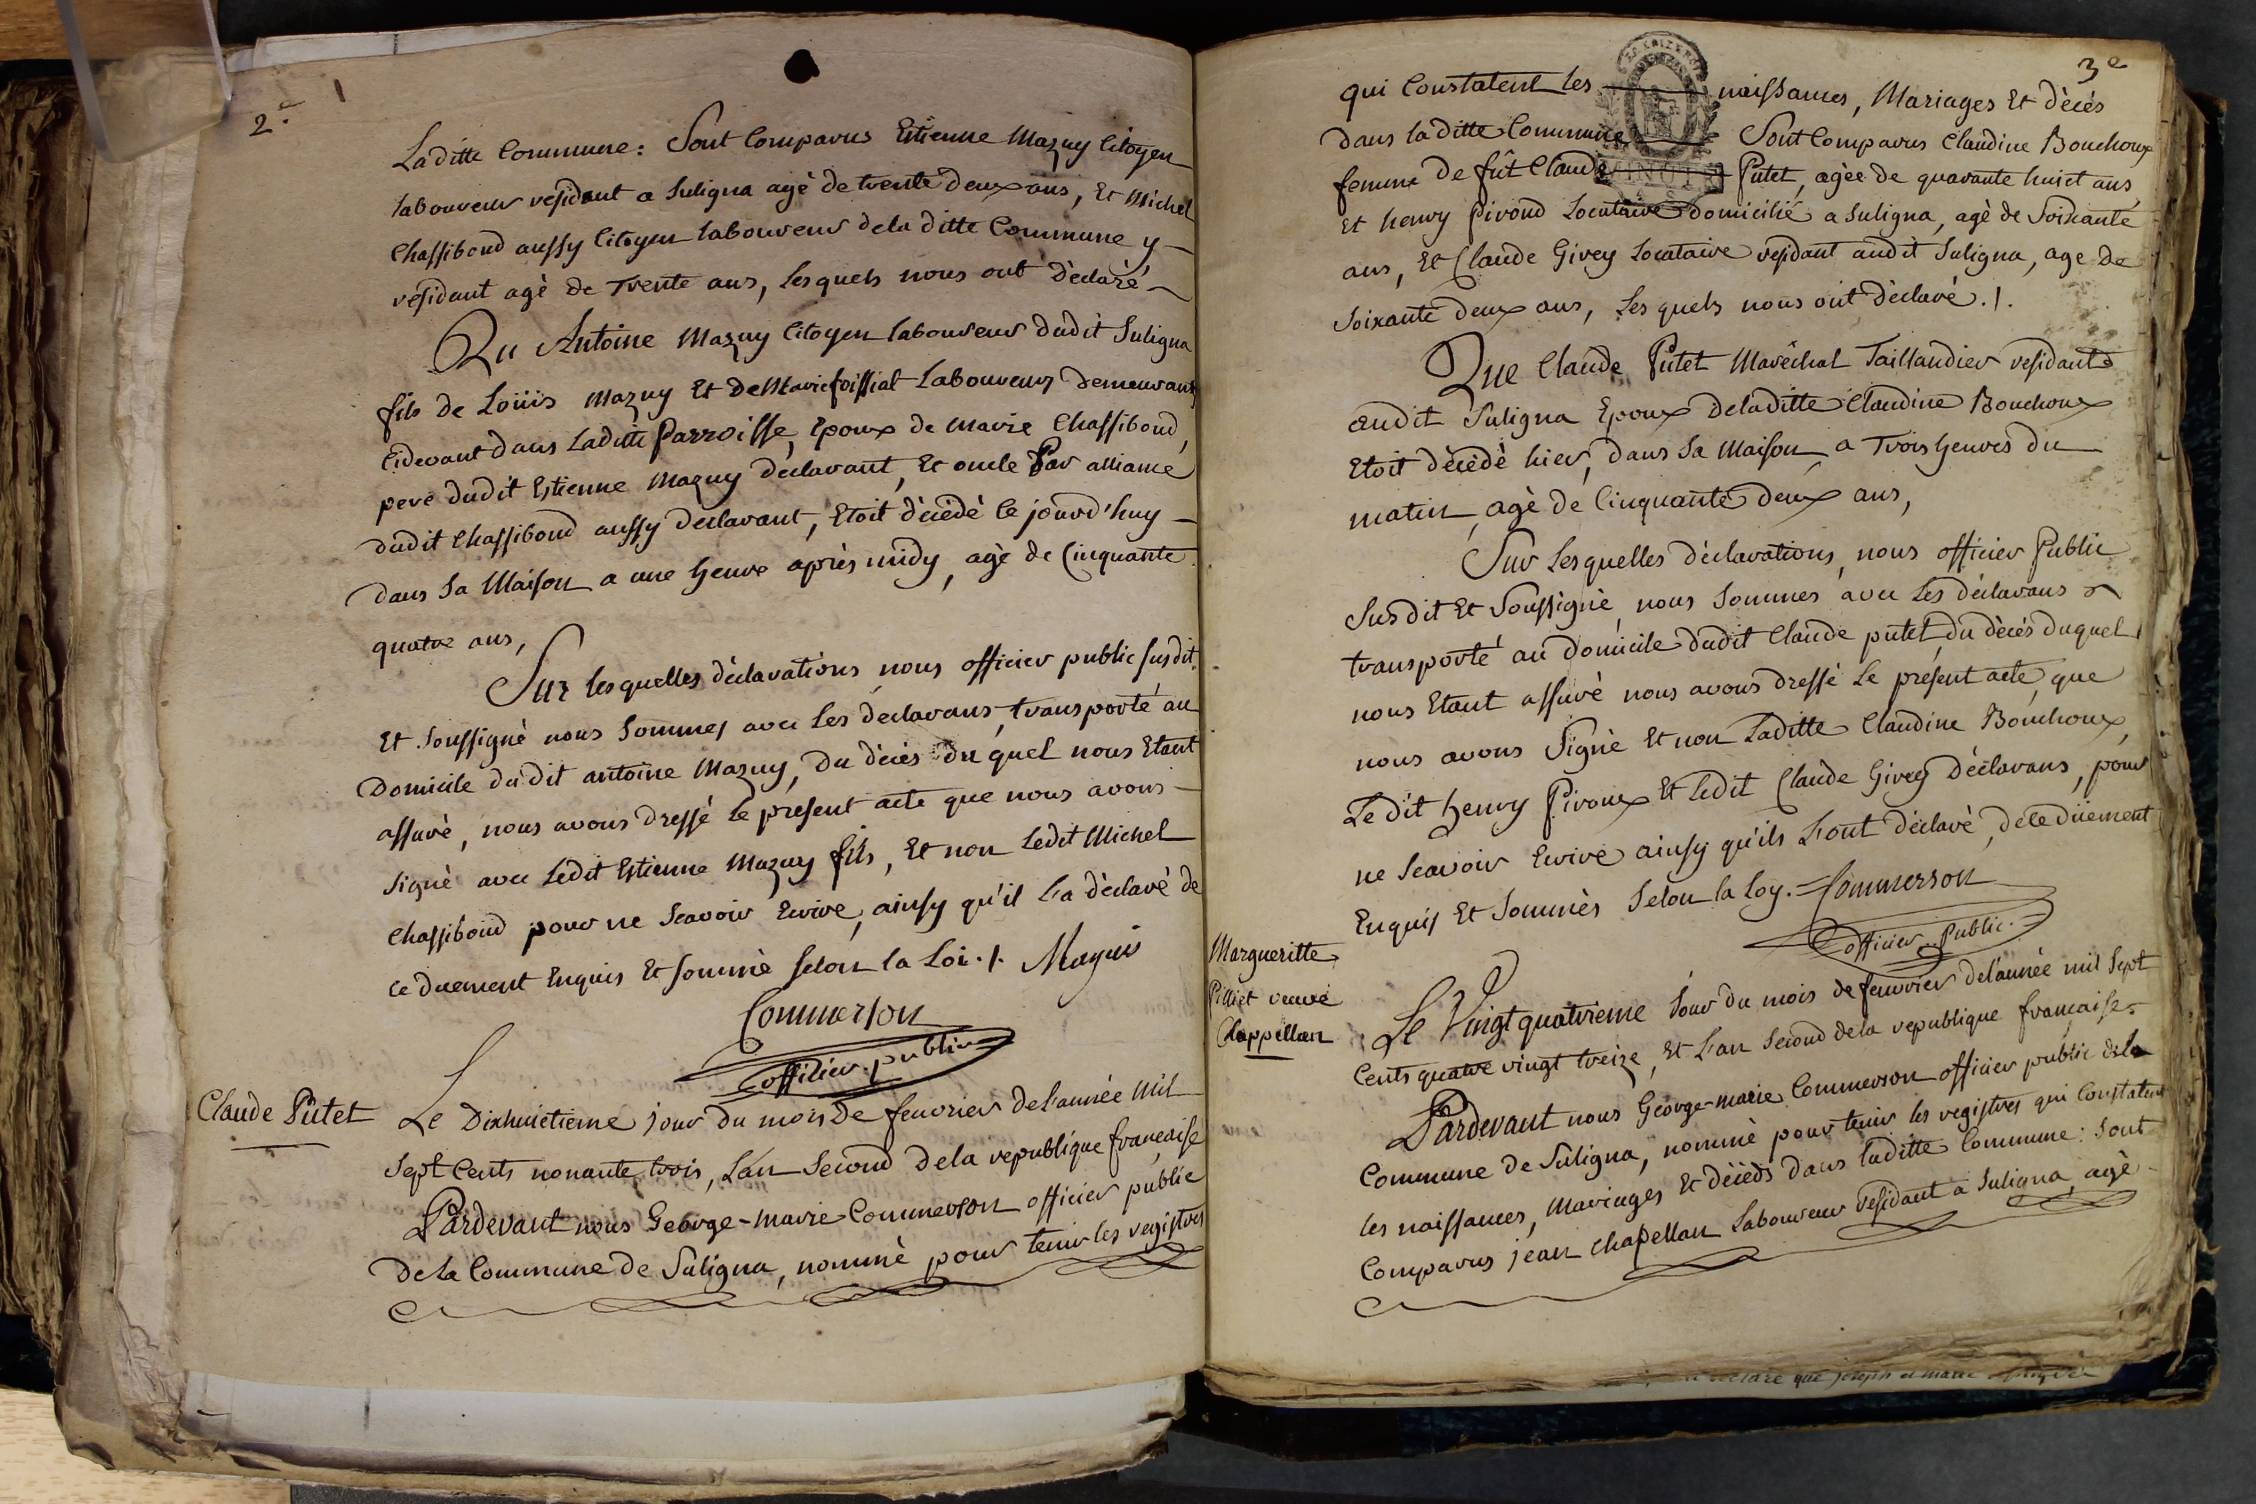 2.e
Laditte Commune : Sont Comparus Estienne Mazuy Citoyen
laboureur résidant a Suligna agè de trente deux ans, Et Michel
Chassiboud aussy Citoyen laboureur dela ditte Commune y
résidant agè de Trente ans, Lesquels nous ont dèclaré
Qu Antoine Mazuy Citoyen laboureur dudit Suligna
fils de Loüis Mazuy Et de Marie foissiat Laboureurs demeurans
Cidevant dans Laditte Parroisse, Epoux de Marie Chassiboud,
pere dudit Estienne Mazuy déclarant, Et oncle Par alliance
dudit Chassiboud aussy declarant, Etoit dècèdè ce jourd'huy
dans Sa Maison a une heure après midy, agè de Cinquante
quatre ans,
Sur lesquelles dèclarations nous officier public susdit
Et Soussigné nous Sommes avec Les déclarans transporté au
Domicile dudit antoine Mazuy, Du dècès du quel nous Etant
assuré, nous avons dressé Le present acte que nous avons
signè avec Ledit Estienne Mazuy fils, Et non Ledit Michel
Chassiboud pour ne Scavoir Ecrire, ainsy qu'il L'a dèclaré de
ce duement Enquis Et sommè selon la Loi ./. Mazuis
Commerson
officier public
Claude Putet
Le Dixhuictieme jour du mois de feuvrier de l'année Mil
Sept Cents nonante trois, L'an Second dela republique française
Pardevant nous George-Marie Commerson officier public
dela Commune de Suligna, nommè pour tenir les registres
3e
VINGT
qui Constatent les naissances, Mariages Et dècès
dans laditte Commune Sont Comparus Claudine Bouchoux
femme De fût Claude Putet, agèe de quarante huict ans
Et henry Piroud Locataire domicilié a Suligna, agè de Soixante
ans, Et Claude Girey Locataire résidant audit Suligna, age de
Soixante deux ans, Les quels nous ont dèclaré ./.
Que Claude Putet Marêchal Taillandier residant
audit Suligna Epoux deladitte Claudine Bouchoux
Etoit dècèdé hier, dans Sa Maison a Trois heures du
matin, agè de Cinquante deux ans,
Sur Lesquelles dèclarations, nous officier Public
Susdit Et Soussignè, nous Sommes avec Les déclarans
transporté au domicile dudit Claude putet, du dècès duquel
nous Etant assurè nous avons dressè Le présent acte, que
nous avons Signè Et non Laditte Claudine Bouchoux,
Le dit henry Piroux Et Ledit Claude Girey Déclarans, pour
ne Scavoir Ecrire ainsy qu'ils L'ont dèclaré, de ce düement
Enquis Et Sommès Selon la Loy. = Commerson
officier public.
Margueritte
Pilliet veuve
Chappellan
Le Vingt quatrieme Jour du mois de feuvrier del'année mil Sept
Cents quatre vingt treize, Et L'an Second dela republique française
Pardevant nous George-marie Commerson officier public dela
Commune de Suligna, nommè pour tenir les registres qui Constatent
les naissances, Mariages Et décèds dans laditte Commune : Sont
Comparus jean Chapellan Laboureur résidant a Suligna, agè